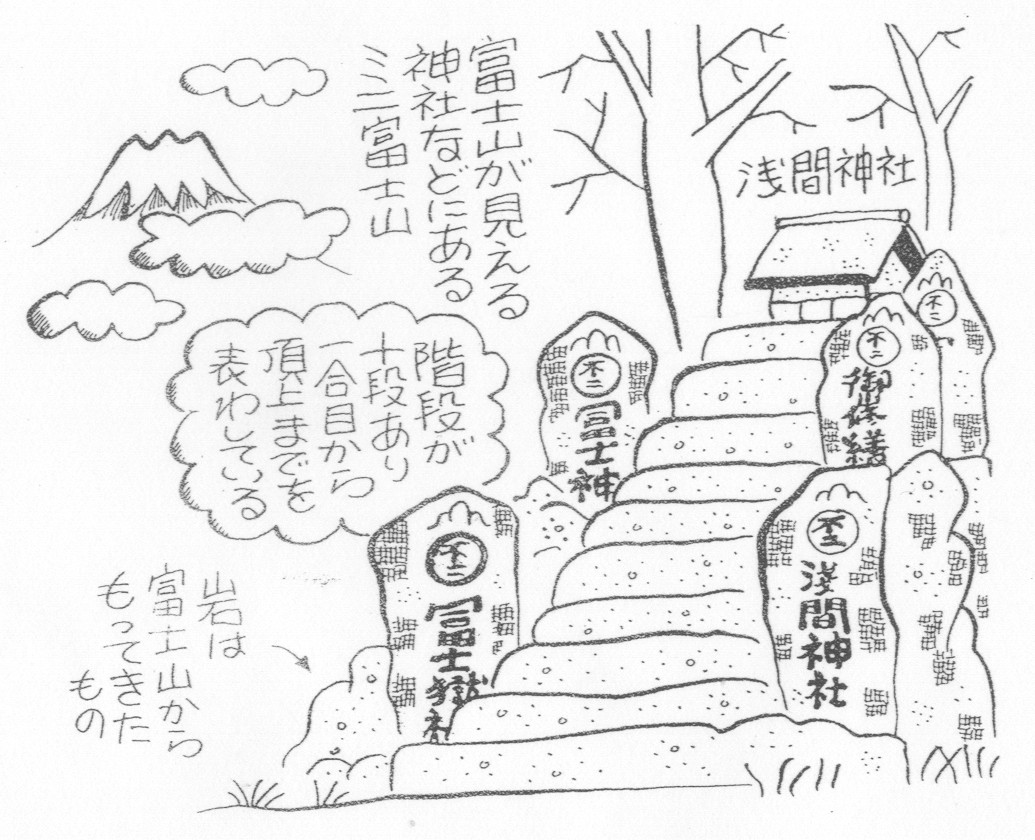 富士山が見える
神社などにある
ミニ富士山
浅間神社
階段が
十段あり
一合目から
頂上までを
表わしている
岩は
富士山から
もってきた
もの
不二
不二
御修繕
不二
冨士神
不二
浅間神社
不二
冨士嶽